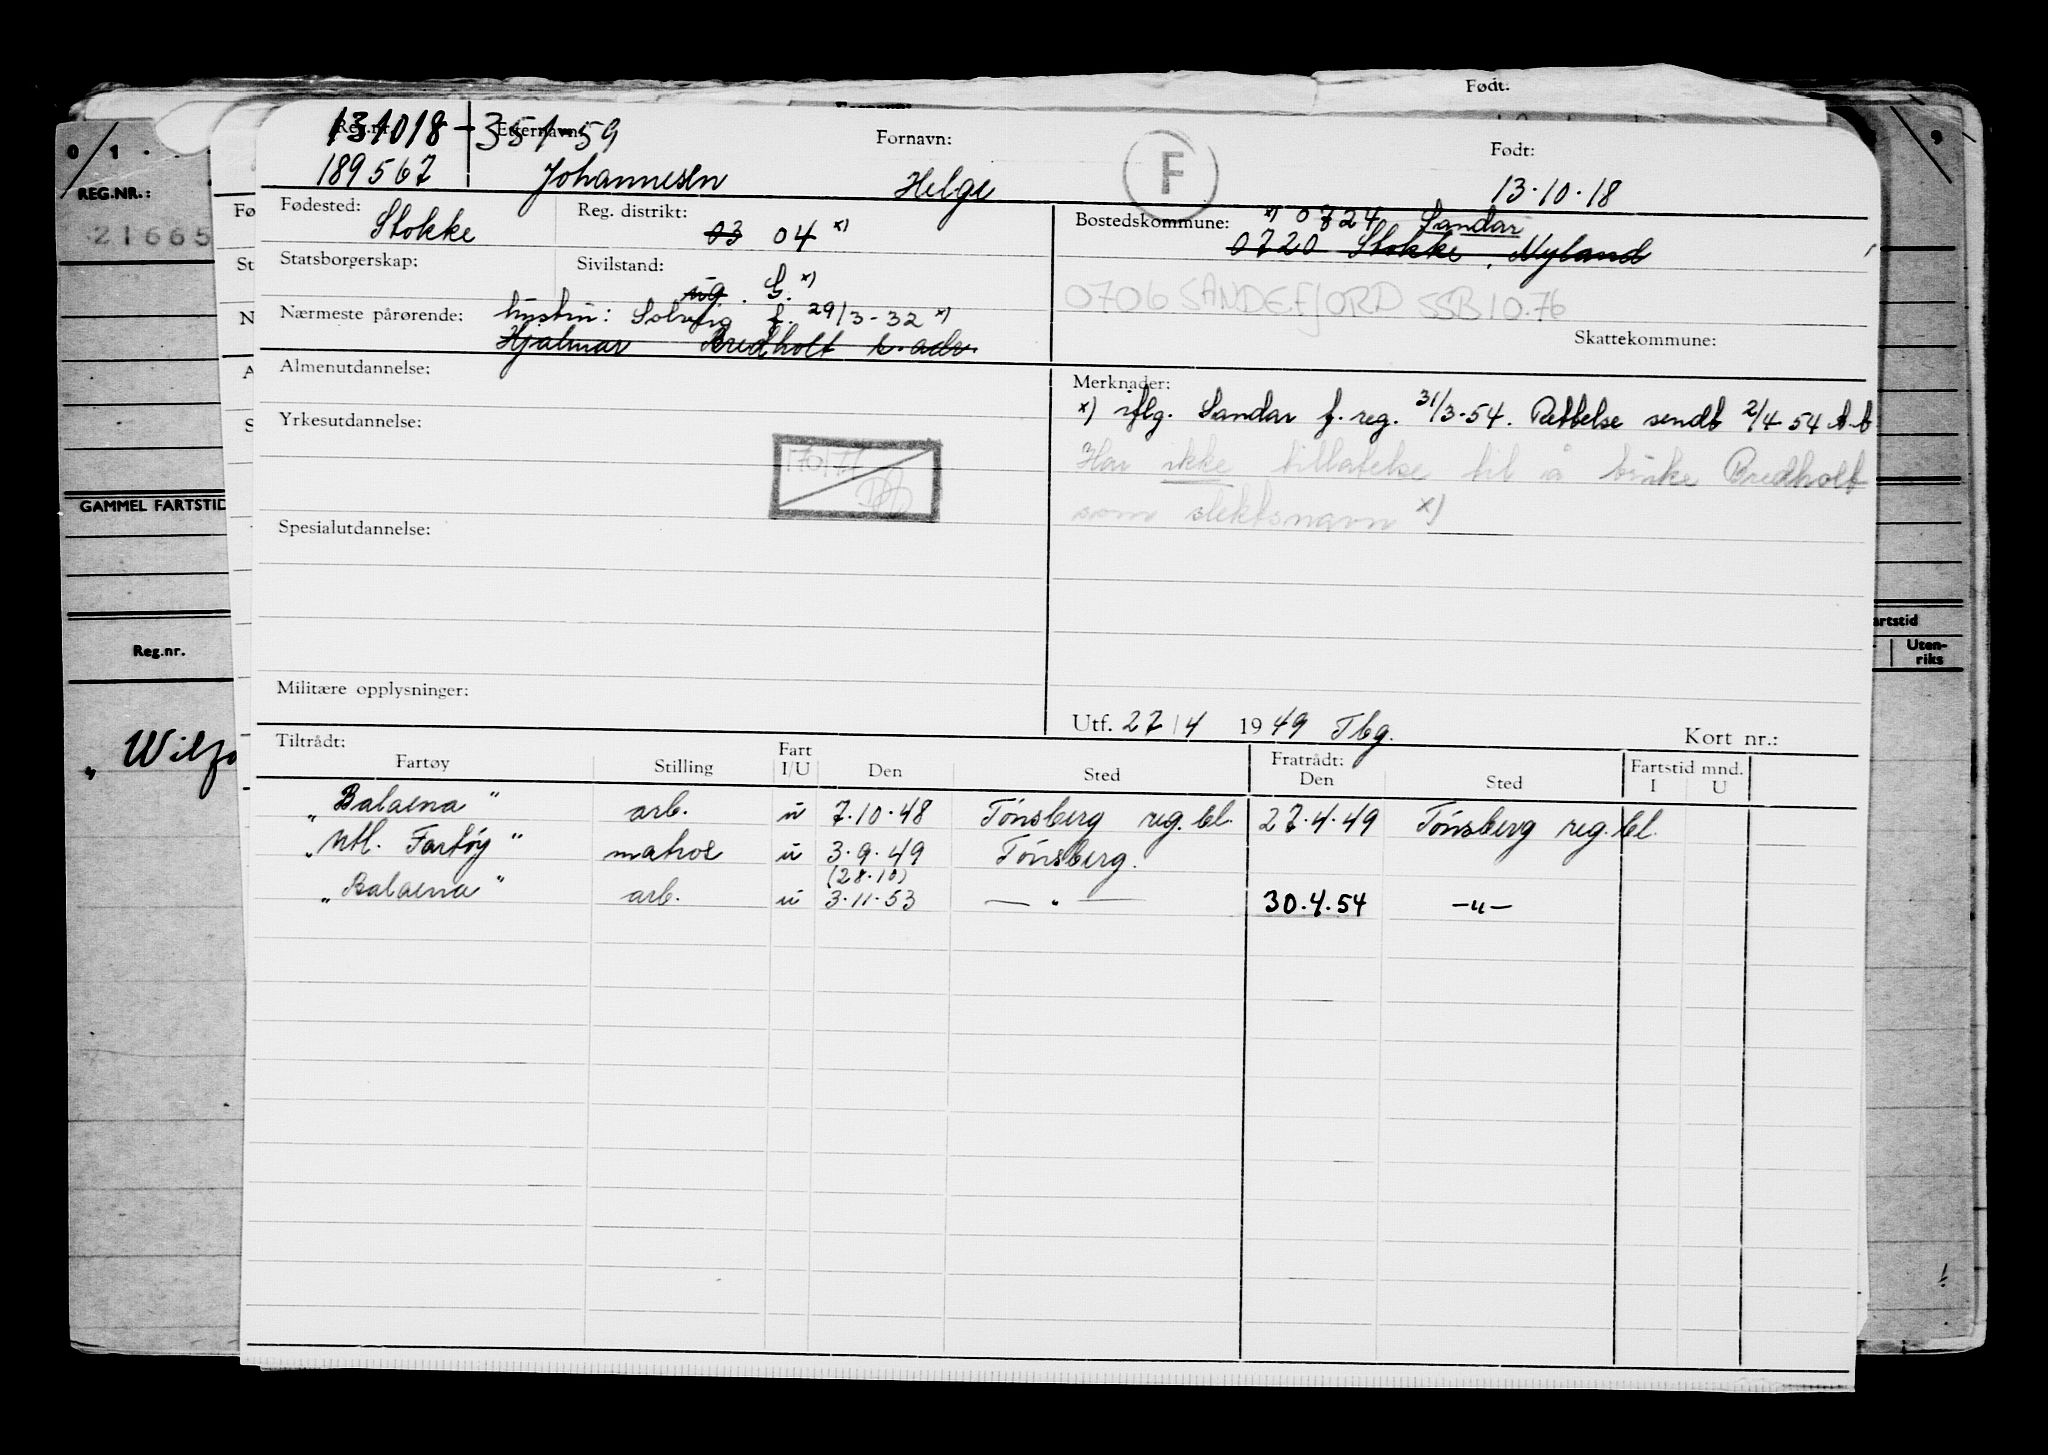 Født:
131018-35159
Reg.nr. Etternavn: Fornavn: Født:
189567 Johannesen Helge F 13.10.18
Fødested: Stokke Reg. distrikt: 03 04 x)
Bostedskommune: x) 0724 Sandar
0720 Stokke, Nyland
Statsborgerskap: Sivilstand: ug. G. x)
0706 SANDEFJORD SSB 10.76
Nærmeste pårørende: hustru: Solveig f. 29/3-32 x)
Hjalmar Bredholt s. adr.
Skattekommune:
Almenutdannelse:
Merknader:
x) iflg. Sandar f.reg. 31/3-54. Rettelse sendt 2/4 54
Yrkesutdannelse:
Har ikke tillatelse til å bruke Bredholt
som slektsnavn x)
Spesialutdannelse:
Militære opplysninger:
Utf. 27/4 1949 Tbg. Kort nr.:
Tiltrådt: Fratrådt: Fartstid mnd.
Fartøy Stilling Fart I/U Den Sted Den Sted I U
"Balaena" arb. u 7.10.48 Tønsberg reg.bl. 27.4.49 Tønsberg reg.bl.
"Utl. Fartøy" matros u 3.9.49 Tønsberg.
(28.10)
"Balaena" arb. u 3.11.53 — " — 30.4.54 —"—
0 1
REG.NR.:
21665
Fø
St
N
A
S
GAMMEL FARTSTID
Reg.nr.
"Wilfo
9
artstid
Uten-
riks